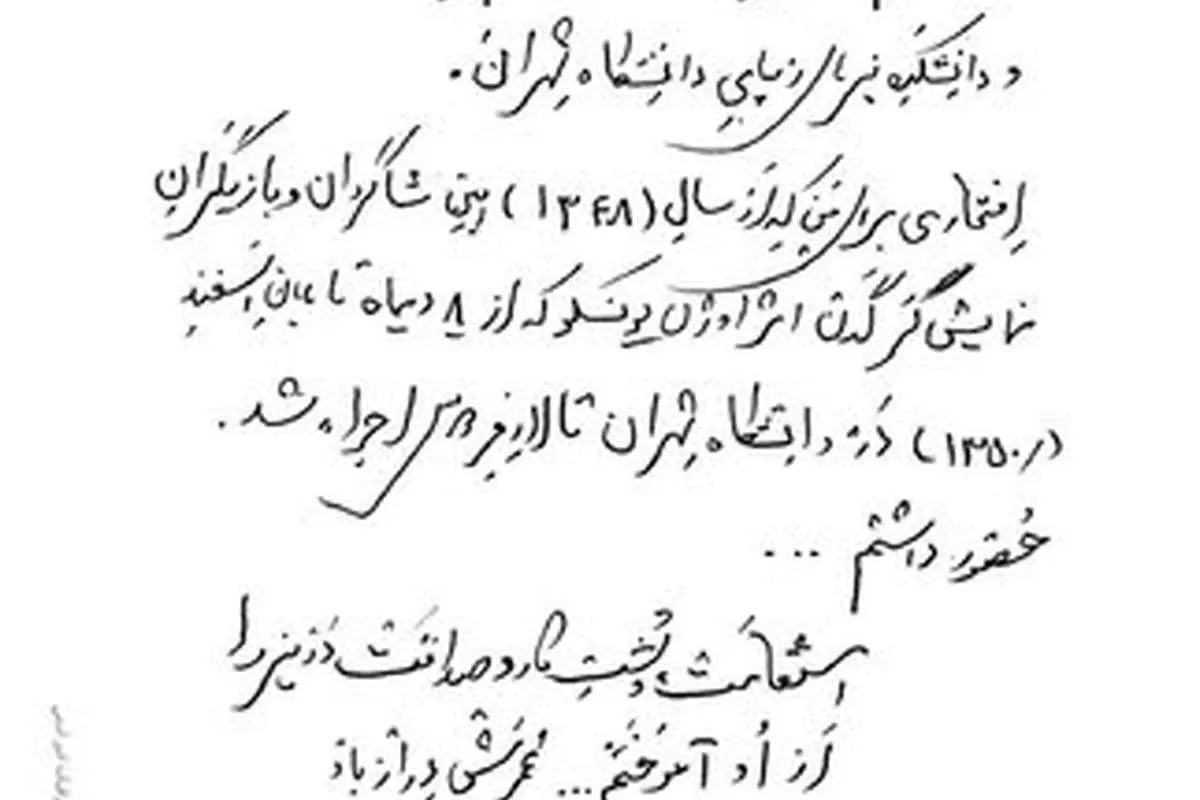 و دانشکده هنرهای زیبایی دانشگاه تهران.
افتخاری برای من که از سال (۱۳۴۸) بین شاگردان و بازیگران
نمایش کرگدن اثر اوژن یونسکو که از ۸ دیماه تا پایان اسفند
(در ۱۳۵۰) در دانشگاه تهران تالار فردوسی اجراء شد.
حضور داشتم ...
استقامت، پشتِ کار و صداقت در هنر را
از او آموختم... عمرش دراز باد